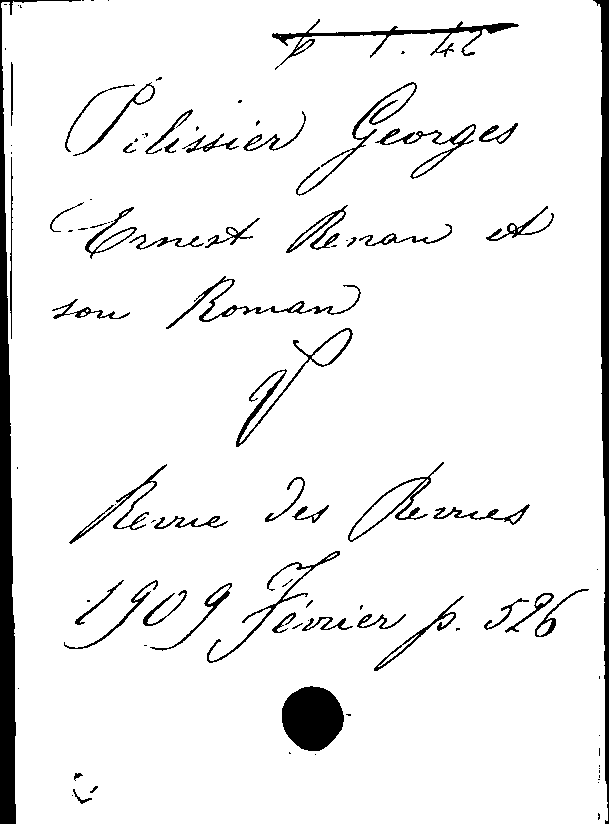 1.42
Pelissier Georges
Ernest Renan et
son Roman
Revue des Revues
1909 Février p. 526